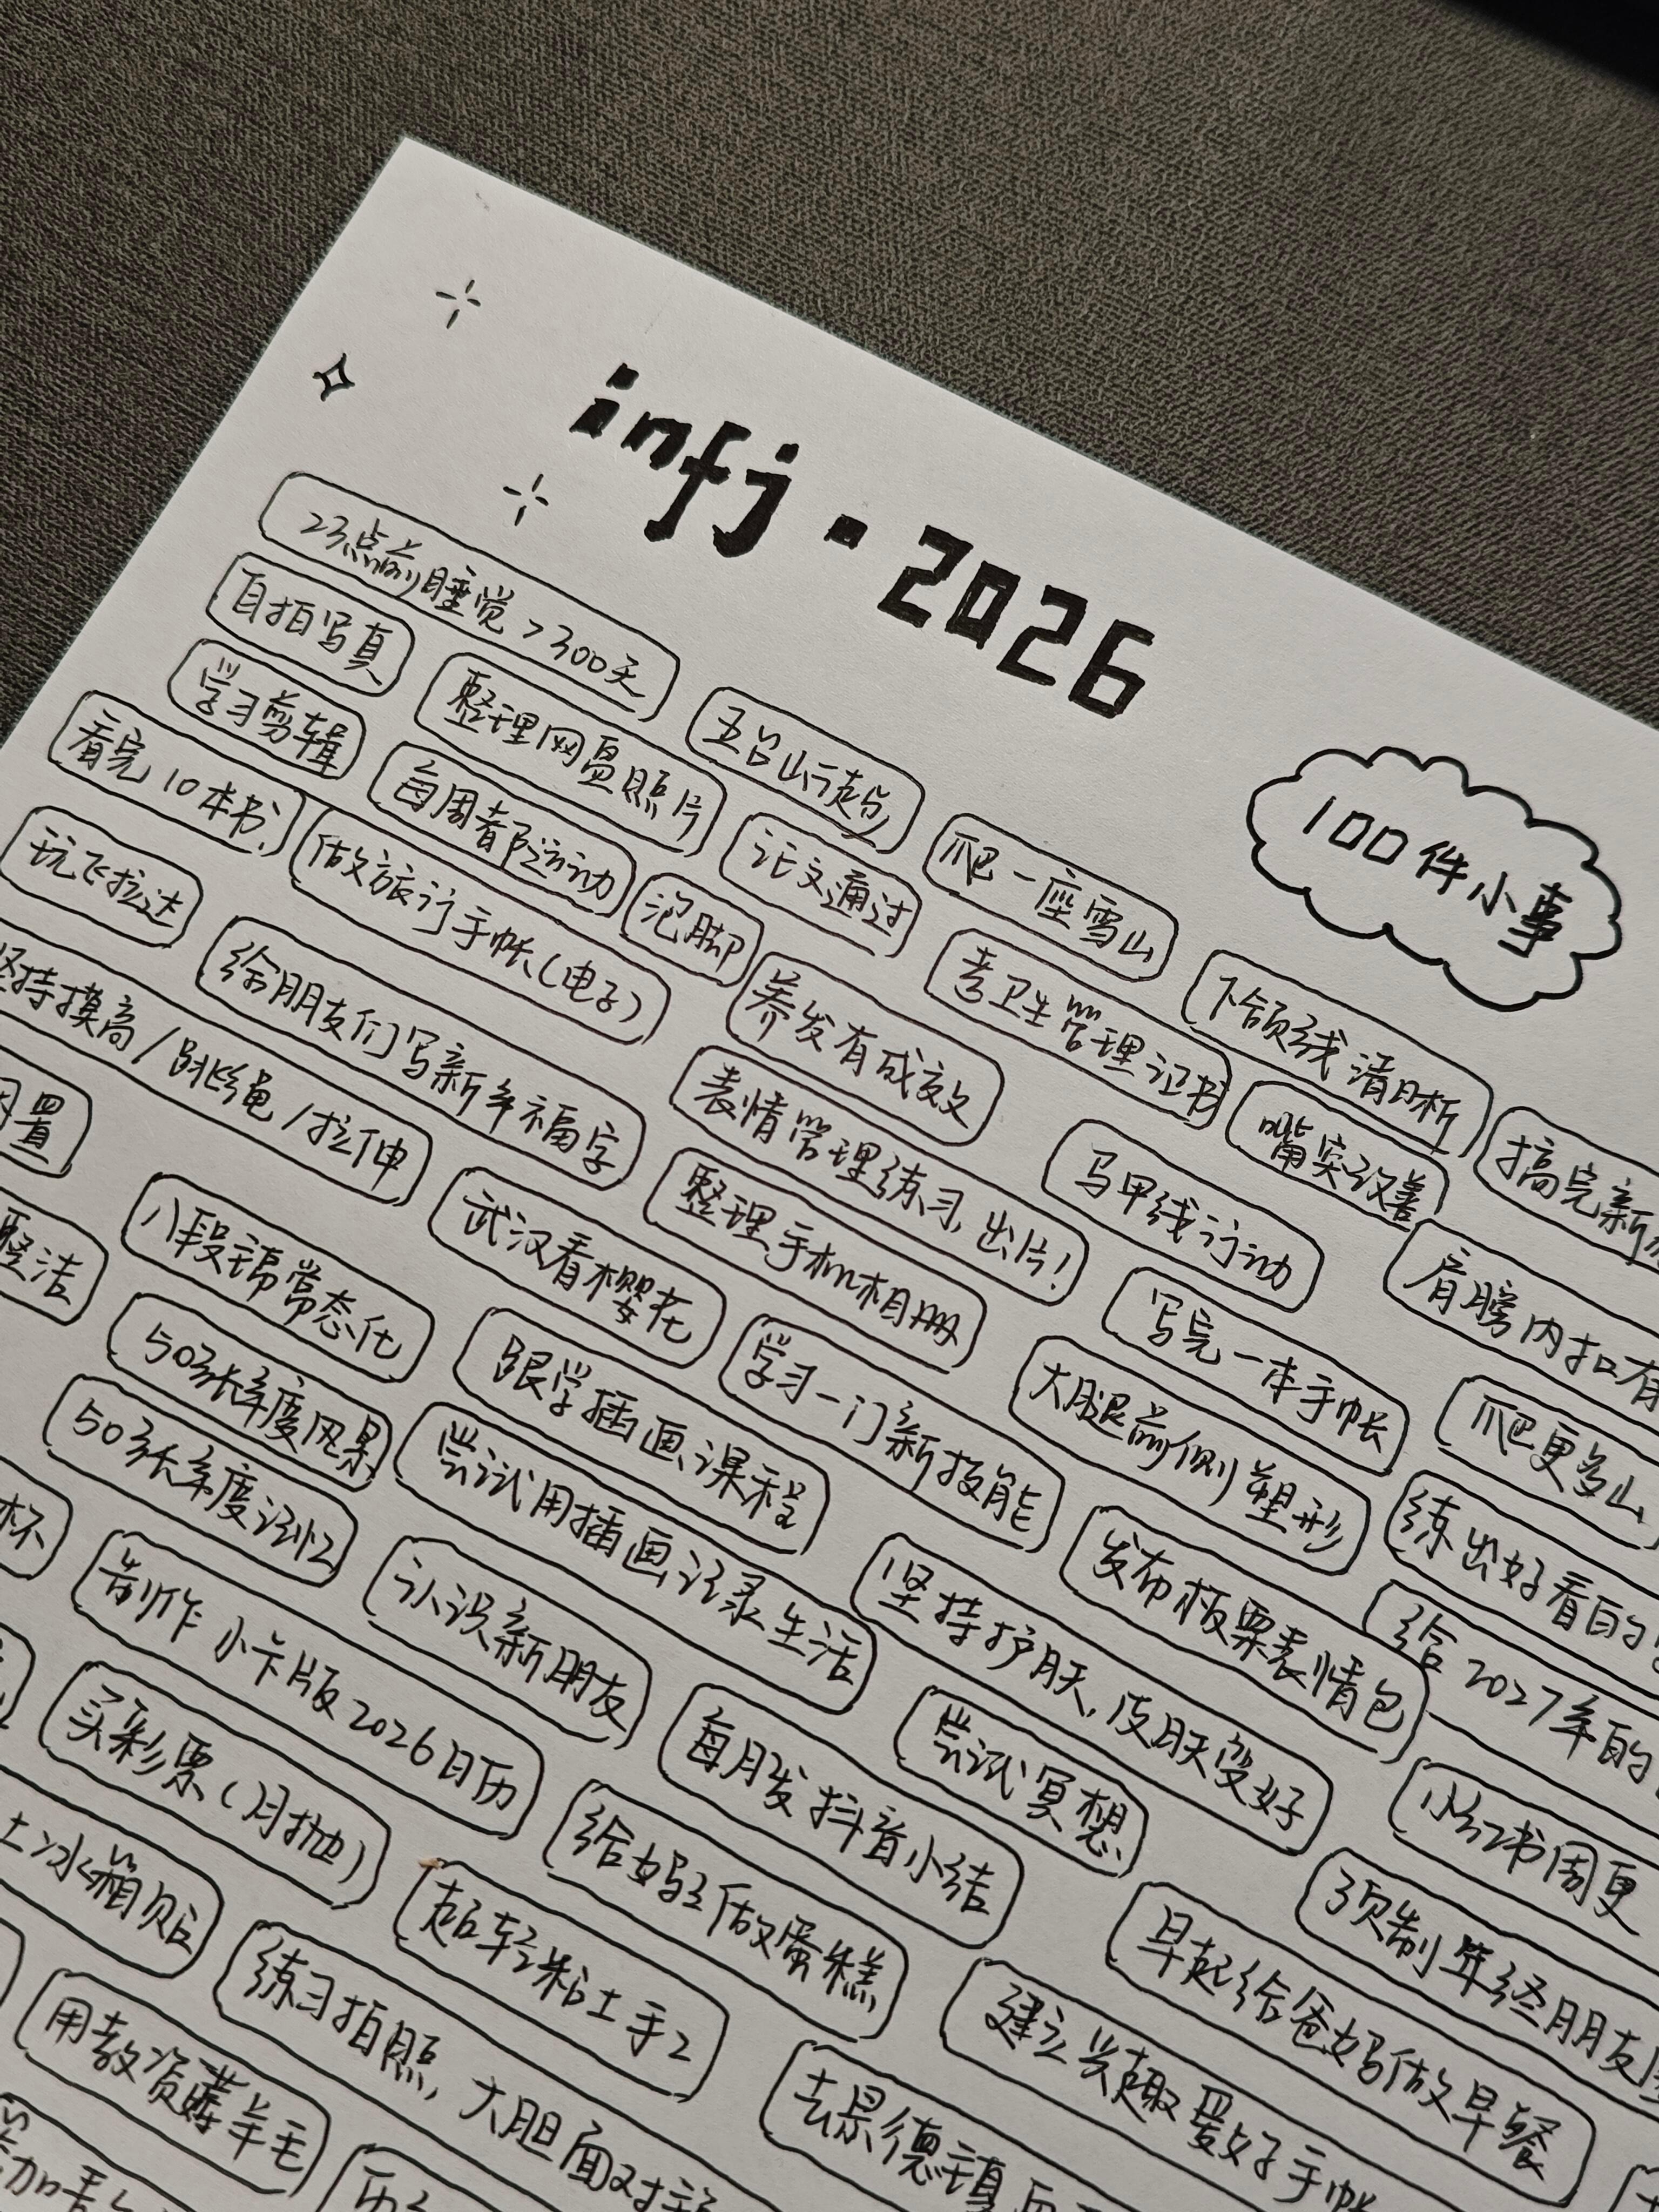 infj·2026
100件小事
23点前睡觉>300天
自拍写真
整理网盘照片
五台山行起
学习剪辑
每周都运动
论文通过
爬一座雪山
看完10本书
做旅行手帐(电子)
泡脚
考卫生管理证书
下颌线清晰
玩飞拉达
给朋友们写新年福字
养发有成效
嘴突改善
搞完新
坚持摸高/跳绳/拉伸
表情管理练习,出片!
马甲线行动
肩膀内扣有
置
八段锦常态化
武汉看樱花
整理手机相册
写完一本手帐
爬更多山
洁
50张年度风景
跟学插画课程
学习一门新技能
大腿前侧塑形
练出好看的
50张年度记忆
尝试用插画记录生活
坚持护肤,皮肤变好
发布板栗表情包
给2027年的
杯
制作小卡版2026日历
认识新朋友
每月发抖音小结
尝试冥想
小红书周更
买彩票(月抛)
给妈妈做蛋糕
早起给爸妈做早餐
预制年终朋友圈
土冰箱贴
超轻粘土手工
建立兴趣爱好手帐
用教资薅羊毛
练习拍照,大胆面对
去景德镇
加